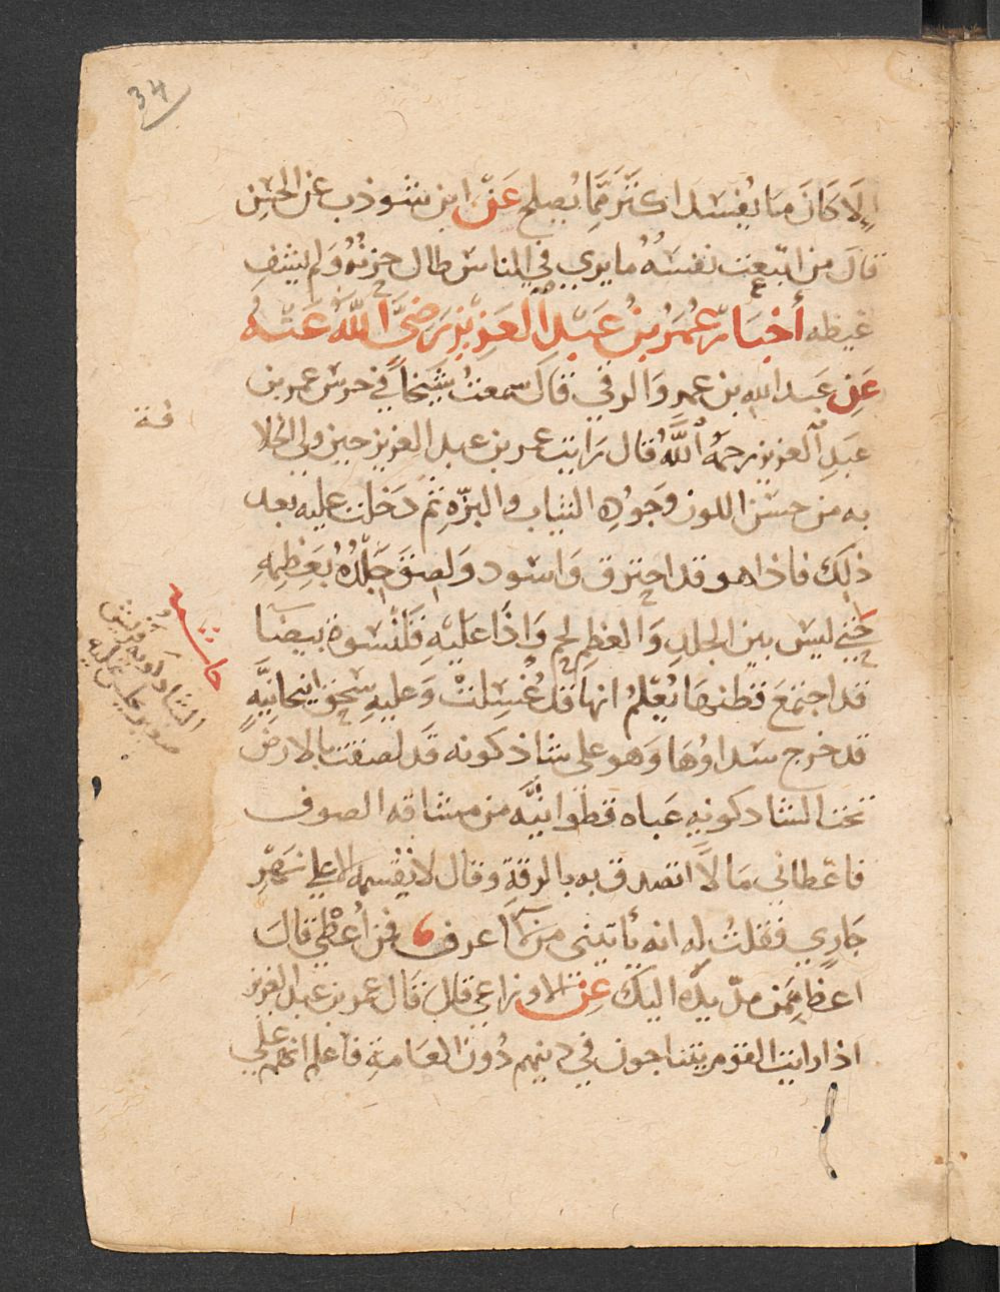 34
إلا كان ما يفسد اكثر مما يصلح عن ابن شوذب عن الحسن
قال من اتبعت نفسه ما يرى في الناس طال حزنه ولم يشف
غيظه أخبار عمر بن عبد العزيز رضي الله عنه
عن عبد الله بن عمرو الرقي قال سمعت شيخاً في حرس عمر بن
عبد العزيز رحمه الله قال رايت عمر بن عبد العزيز حين ولي الخلا
فة
به من حسن اللون وجوده الثياب والبزه ثم دخلت عليه بعد
ذلك فاذا هو قد احترق واسود ولصق جلده بعظمه
حتي ليس بين الجلد والعظم لحم واذا عليه قلنسوة بيضا
قد اجتمع قطنها يعلم انها قد غسلت وعليه سحق انبحانيه
قد خرج سداوها وهو على شاذكونه قد لصقت بالارض
تحت الشادكونه عباه قطوانيه من مشاقه الصوف
فاعطاني مالا اتصدق به بالرقة وقال لا تقسمه الا علي نهر
جاري فقلت له انه يأتيني من لا اعرف فمن أعطي قال
اعط من مد يده اليك عن الاوزاعي قال قال عمر بن عبد العزيز
اذا رايت القوم يتناجون في دينهم دون العامة فاعلم انهم علي
حاشيه